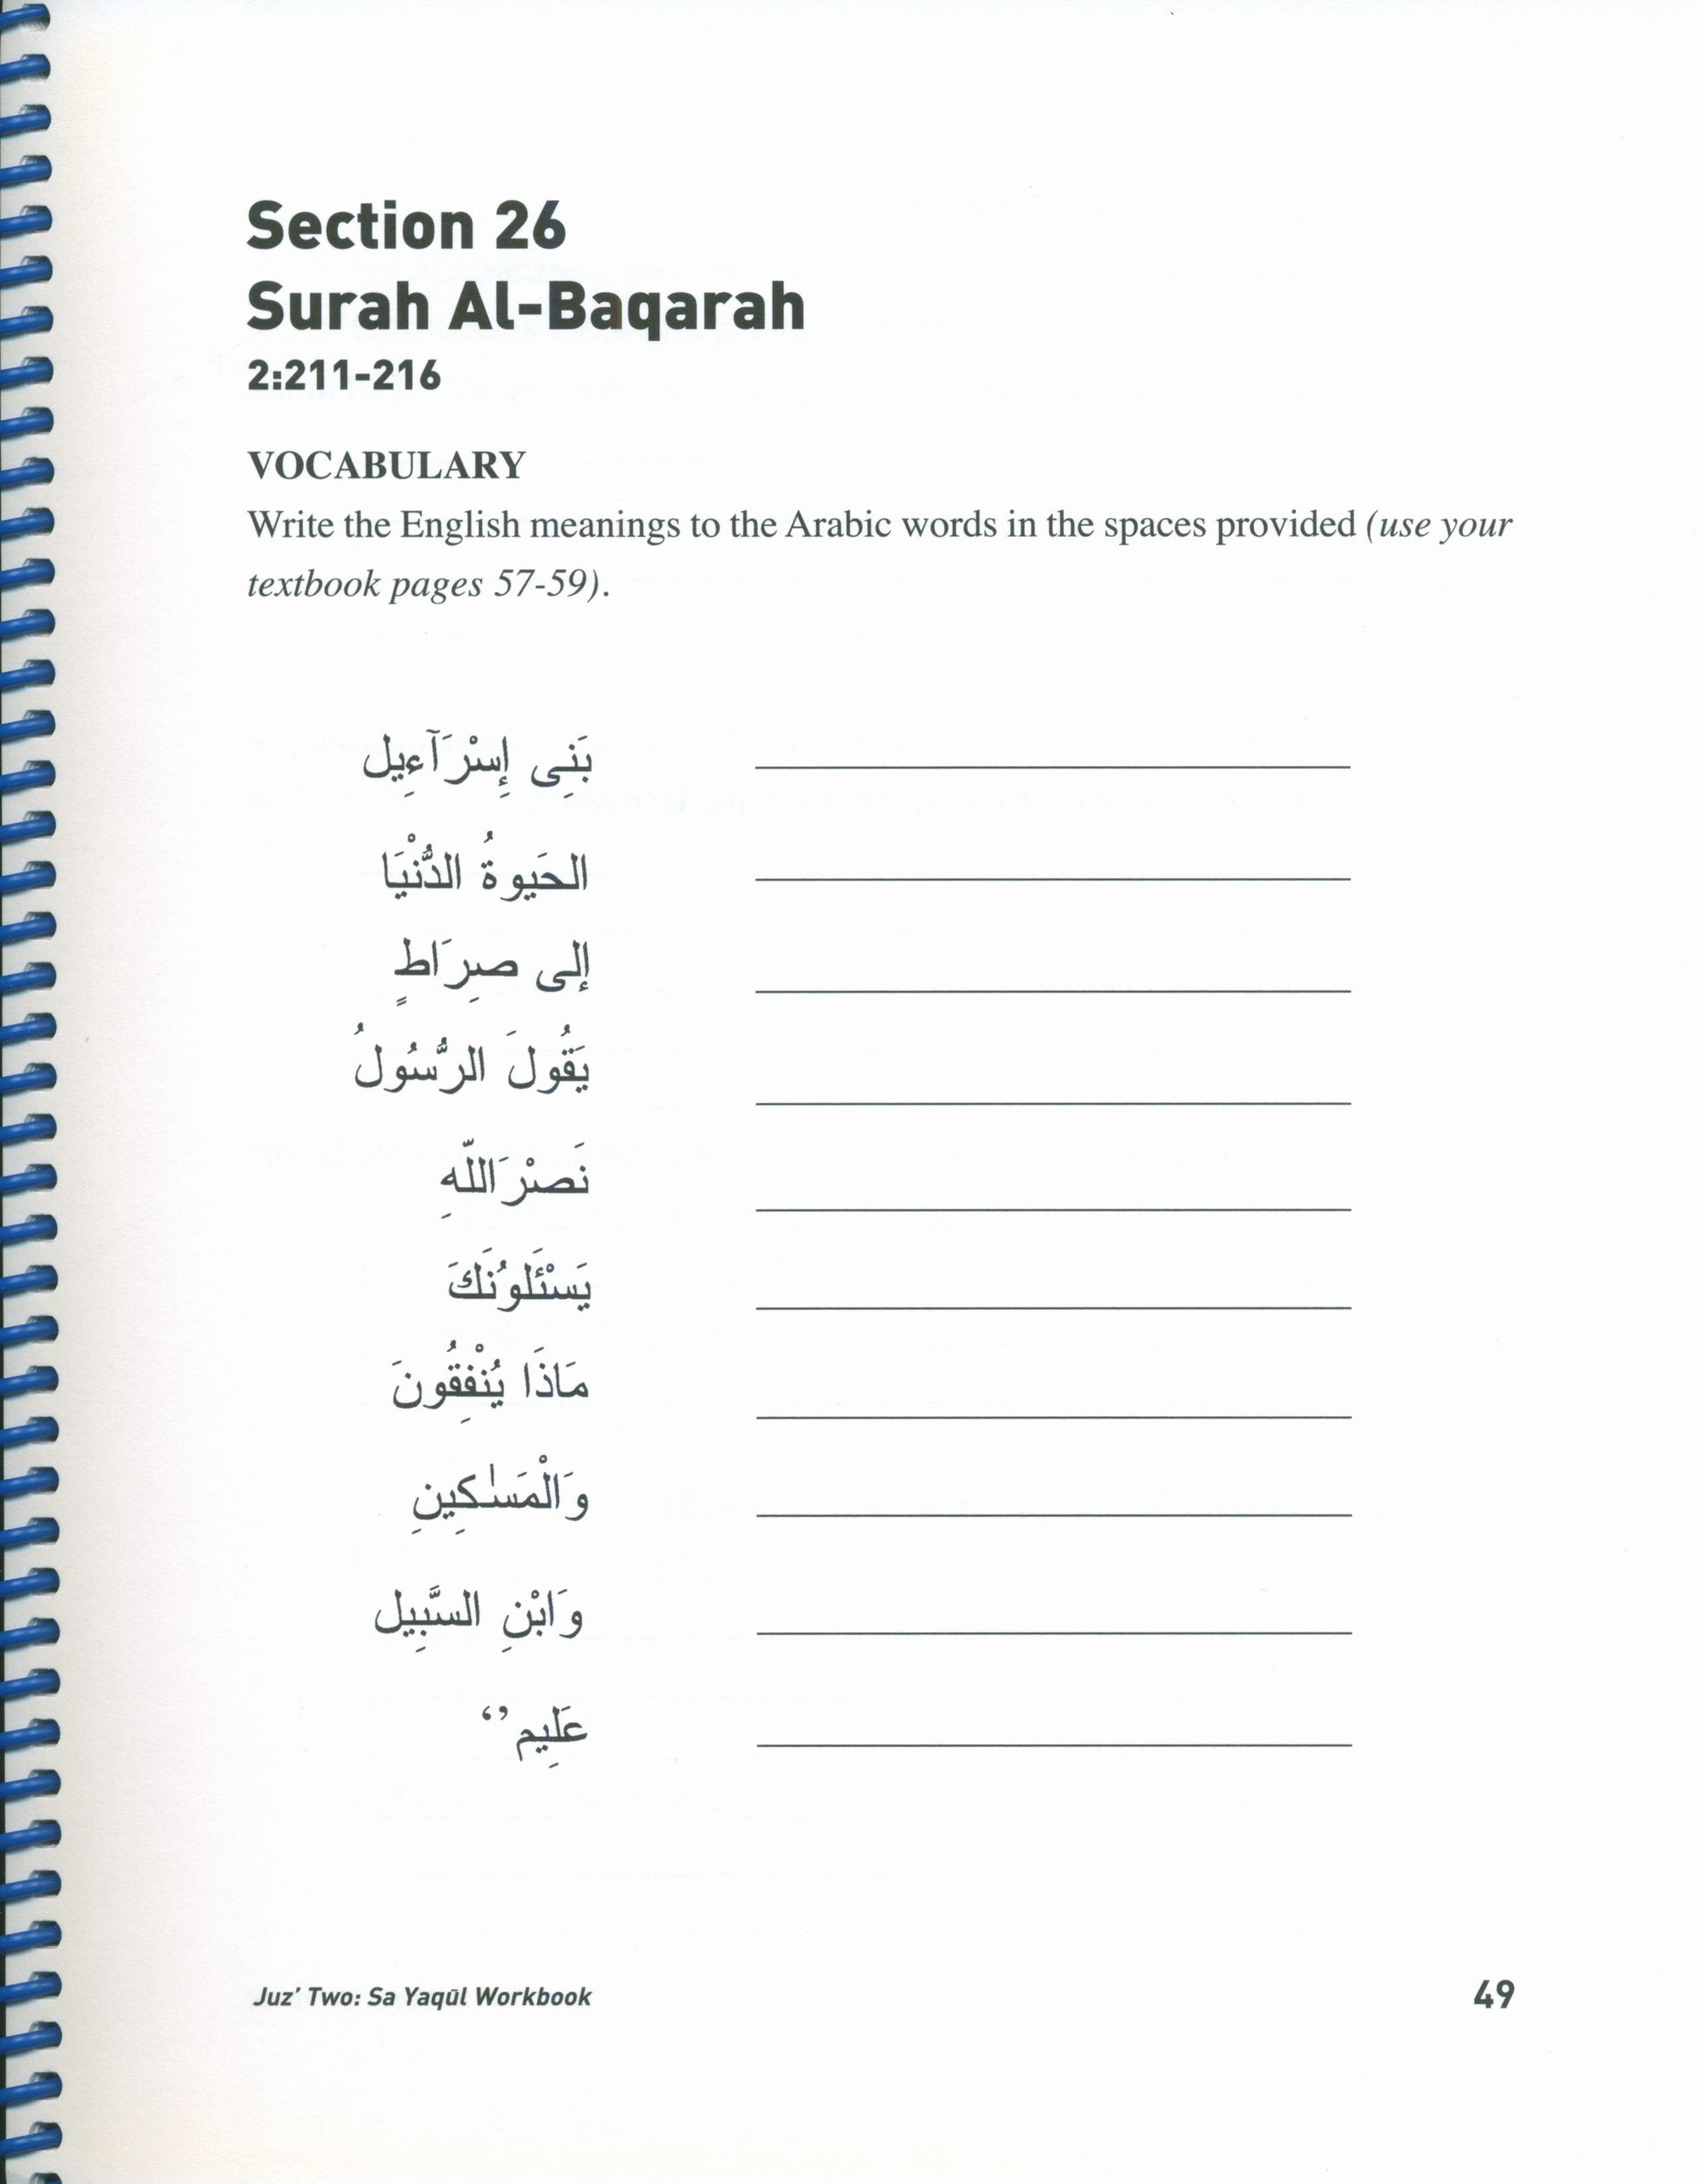 Section 26
Surah Al-Baqarah
2:211-216
VOCABULARY
Write the English meanings to the Arabic words in the spaces provided (use your
textbook pages 57-59).
بَنِى إِسْرَآءِيل
الحَيوةُ الدُّنْيَا
إلى صِرَاطٍ
يَقُولَ الرَّسُولُ
نَصْرَاللّهِ
يَسْئَلُونَكَ
مَاذَا يُنْفِقُونَ
وَالْمَسٰكِينِ
وَابْنِ السَّبِيل
عَلِيم ’‘
Juz’ Two: Sa Yaqūl Workbook
49